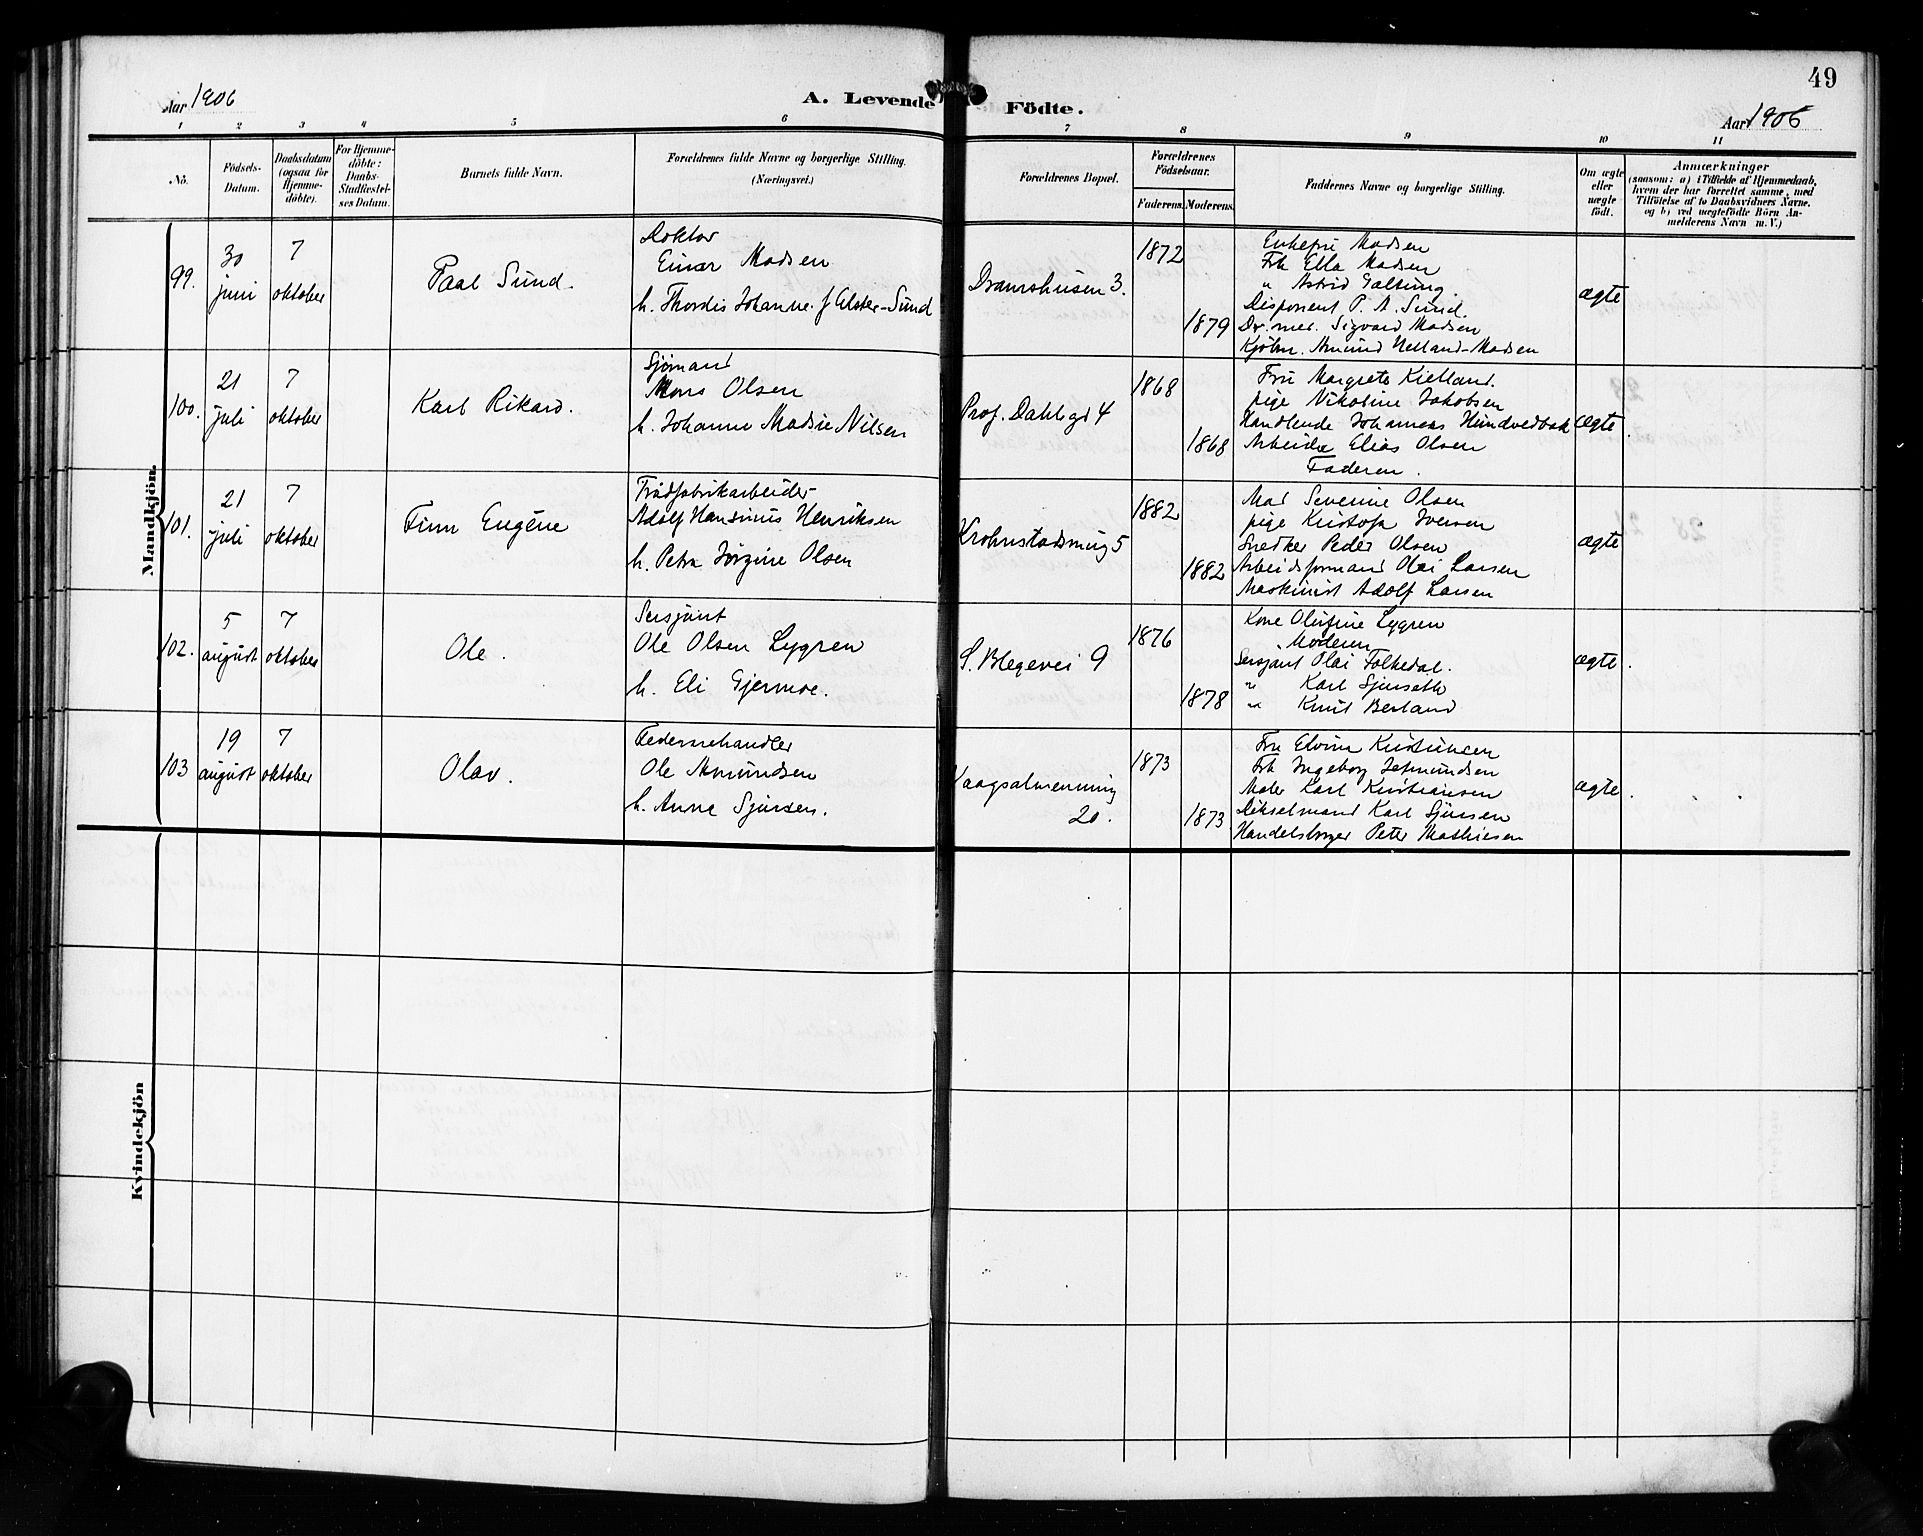 49
Aar 1906
A. Levende Födte.
Aar 1906
1 2 3 4 5 6 7 8 9 10 11
No.
Födsels-Datum.
Daabsdatum (ogsaa for Hjemmedöbte).
For Hjemmedöbte: Daabs-Stadfæstelses Datum.
Barnets fulde Navn.
Forældrenes fulde Navne og borgerlige Stilling. (Næringsvei.)
Forældrenes Bopæl.
Forældrenes Födselsaar.
Faderens. Moderens.
Faddernes Navne og borgerlige Stilling.
Om ægte eller uægte födt.
Anmærkninger
(saasom: a) i Tilfælde af Hjemmedaab, hvem der har forrettet samme, med Tilföielse af to Daabsvidners Navne. og b) ved uægtefödte Börn Anmelderens Navn m. V.)
Mandkjön.
99.
30 juni
7 oktober
Paal Sund.
Doktor
Einar Madsen
h. Thordis Johanne f. Alster-Sund
Dramshusen 3.
1872
1879
Enkefru Madsen
Frk Ella Madsen
" Astrid Galtung.
Disponent P. A. Sund.
Dr. med. Sigvard Madsen
Kjøbm. Amund Helland-Madsen
ægte
100.
21 juli
7 oktober
Karl Rikard.
Sjømand
Mons Olsen
h. Johanne Madsie Nilsen
Prof. Dahls gd 4
1868
1868
Fru Margrete Kielland.
pige Nikoline Jakobsen
Handlende Johannes Hundvedbak
Arbeider Elias Olsen
Faderen.
ægte.
101.
21 juli
7 oktober
Finn Eugéne
Traadfabrikarbeider
Adolf Hansinus Henriksen
h. Petra Jørgine Olsen
Krohnstadsmug 5
1882
1882
Mad Severine Olsen
pige Kristofa Iversen
Snedker Peder Olsen
Arbeidsformand Olai Larsen
Maskinist Adolf Larsen
ægte
102.
5 august
7 oktober
Ole.
Sersjant
Ole Olsen Lygren
h. Eli Gjermoe.
S. Blegevei 9
1876
1878
Kone Olufine Lygren
Moderen
Sersjant Olai Folkedal.
" Karl Sjurseth
" Knut Berland
ægte.
103
19 august
7 oktober
Olav.
Federnehandler
Ole Amundsen
h. Anna Sjursen.
Vaagsalmenning 20.
1873
1873
Fru Elvina Kristiansen
Frk Ingeborg Jetmundsen
Maler Karl Kristiansen
Dikselmand Karl Sjursen
Handelsborger Peter Mathiesen
ægte.
Kvindekjön